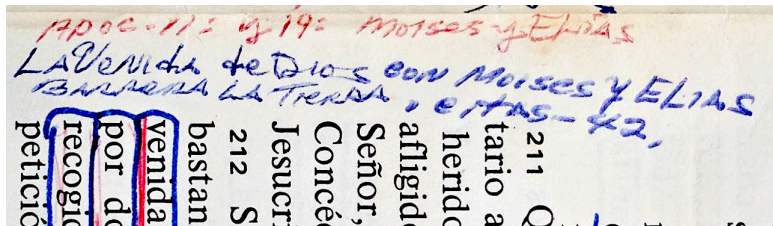 APOC-11: y 19: MOISES y ELIAS
LA VENIDA de DIOS CON MOISES Y ELIAS
BARRERA LA TIERRA, CITAS-42,
211 Q
tario a
herido
afligido
Señor,
Concéd
Jesucri
212 S
bastan
venida
por do
recogid
petició